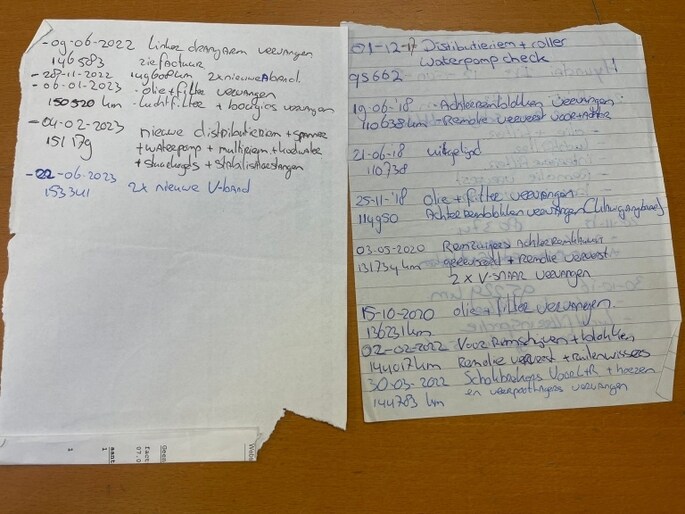 - 09-06-2022 Linker draagarm vervangen
146583 zie factuur
- 28-11-2022 149600km 2x nieuwe A band.
- 06-01-2023 - olie + filter vervangen
150520 km - Luchtfilter + bougies vervangen
- 04-02-2023 nieuwe distributieriem + spanner
151179 + waterpomp + multiriem + koelwater
+ stuurkogels + stabilisatorstangen
- 22-06-2023
153341 2x nieuwe V-band
01-12-17 Distributieriem + roller
Waterpomp check
95662
19-06-'18 - Achterremblokken vervangen
110638km - Remolie ververst voor + achter
21-06-18 uitgelijnd
110738
25-11-'18 olie + filter vervangen
114950 Achterremblokken vervangen
03-05-2020 Remzuigers Achterremklauw
131734 km gereviseerd + Remolie ververst
2 x V-SNAAR vervangen
15-10-2020 olie + filter vervangen
136231km
02-02-2022 Voor Remschijven + blokken
144017km Remolie ververst + ruitenwissers
30-03-2022 Schokbrekers Voor L+R + hoezen
144783 km en veerpootlagers vervangen